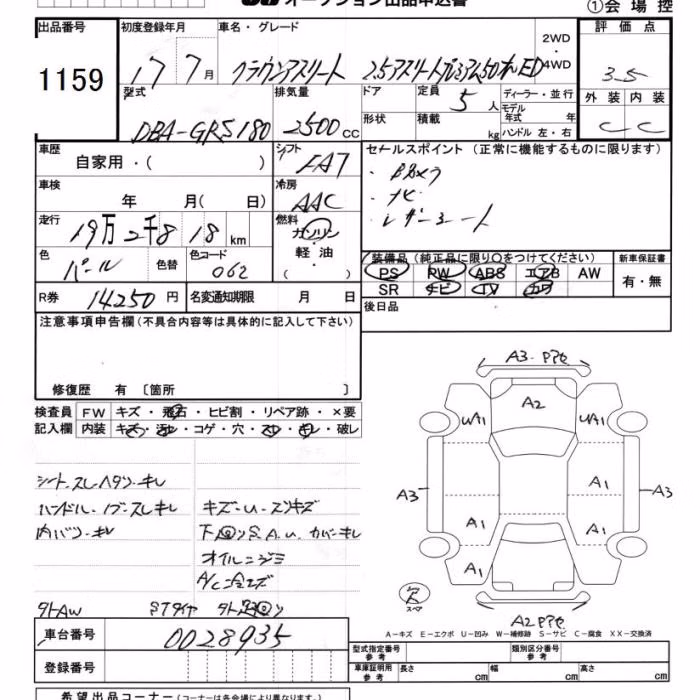 オークション出品申込書
①会場控
出品番号 初度登録年月 車名・グレード 2WD 評価点
1159 17 7月 クラウンアスリート 2.5アスリートプレミアム50th ED 4WD 3.5
型式 排気量 ドア 定員 5人 ディーラー・並行 外装 内装
DBA-GRS180 2500cc 形状 積載 kg モデル年式 年 ハンドル 左・右 C C
車歴 自家用・( ) シフト FA7 セールスポイント(正常に機能するものに限ります)
・Bカメラ
車検 年 月( 日) 冷房 AAC ・ナビ
・レザーシート
走行 19万2千818km 燃料 ガソリン・軽油・( )
装備品(純正品に限り○をつけてください) 新車保証書
色 パール 色替 色コード 062 PS PW ABS エアB AW 有・無
SR ナビ TV カワ
R券 14250円 名変通知期限 月 日 後日品
注意事項申告欄(不具合内容等は具体的に記入して下さい)
修復歴 有 〔箇所 〕
検査員 FW キズ・飛石・ヒビ割・リペア跡・×要
記入欄 内装 キズ・汚れ・コゲ・穴・スレ・キレ・破レ
シートスレ・ヘタリ・キレ
ハンドル・ノブ・スレキレ キズ・U・スリキズ
内バリ・キレ カバーキレ
オイルニジミ
A/C
外AW STタイヤ
A3・
A2
UA1 UA1
A3 A1 A3
A1 A1
A1
欠 スペア
A2
A-キズ E-エクボ U-凹み W-補修跡 S-サビ C-腐食 XX-交換済
車台番号 0028935
型式指定番号 参考 類別区分番号 参考
登録番号 車庫証明用 参考 長さ cm 幅 cm 高さ cm
希望出品コーナー(コーナーは各会場により異なります)